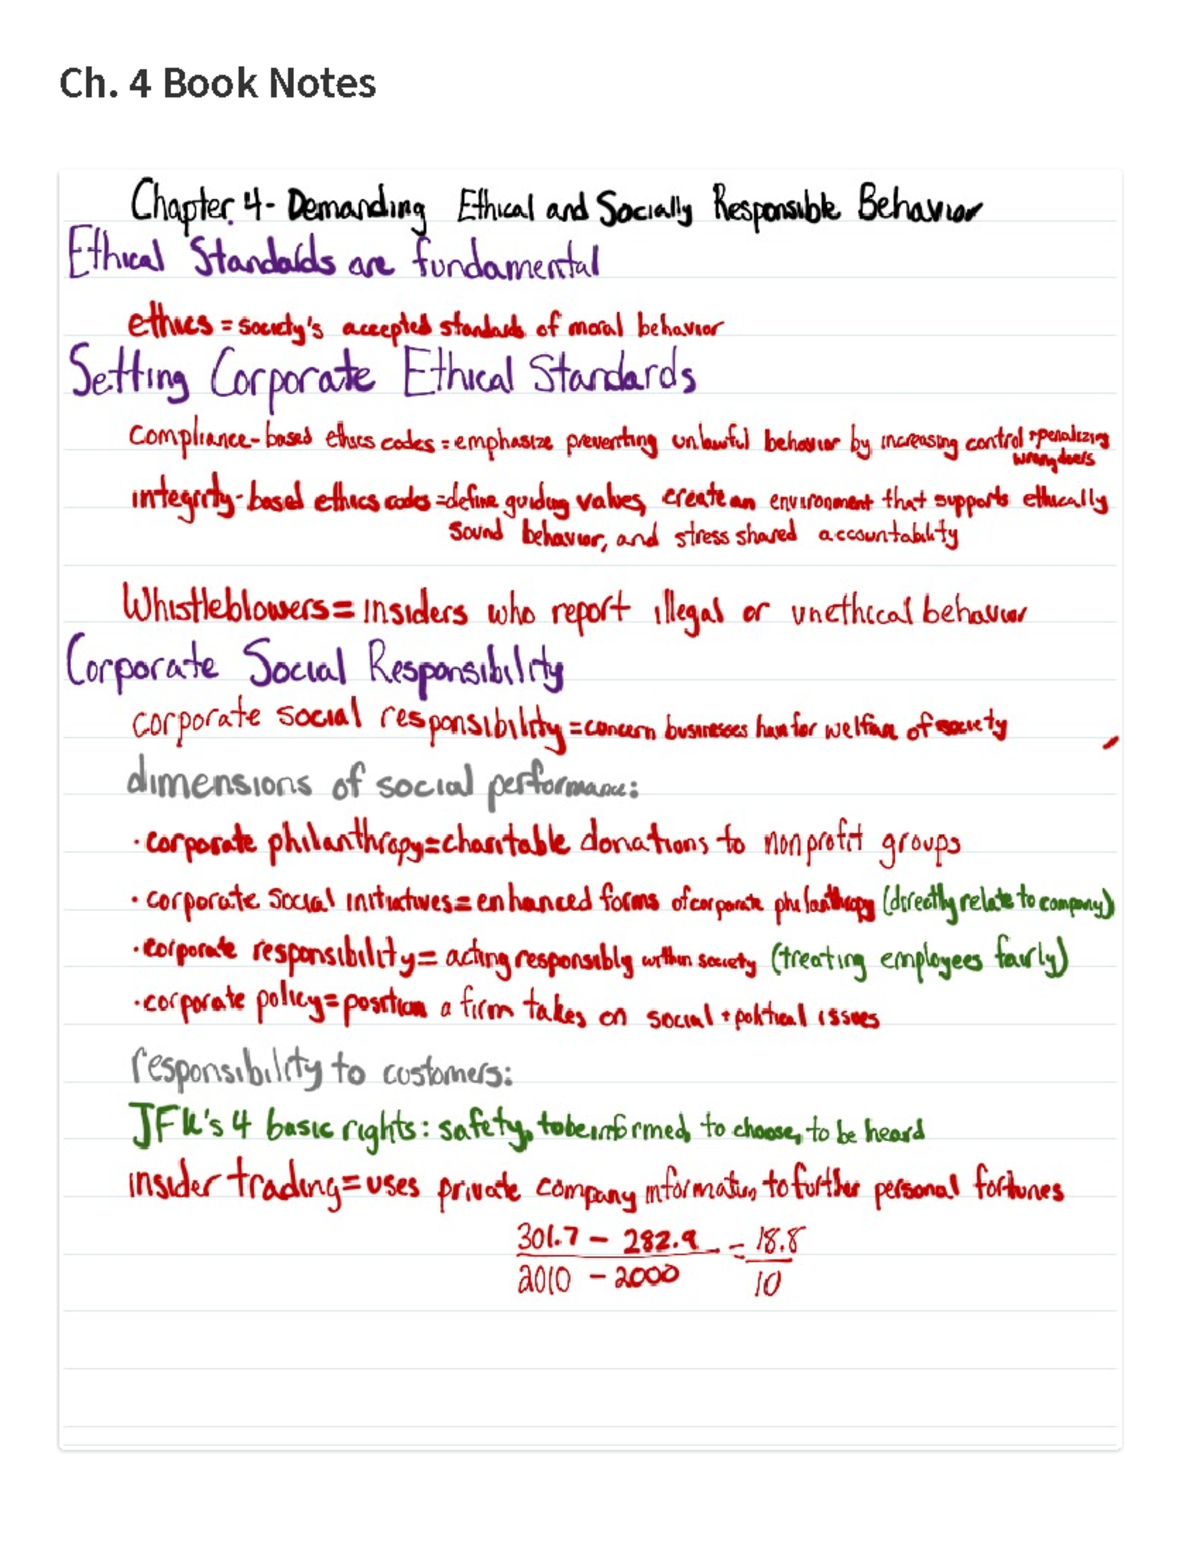 Ch. 4 Book Notes
Chapter 4- Demanding Ethical and Socially Responsible Behavior
Ethical Standards are fundamental
ethics = society's accepted standards of moral behavior
Setting Corporate Ethical Standards
Compliance-based ethics codes = emphasize preventing unlawful behavior by increasing control + penalizing
wrongdoers
integrity-based ethics codes = define guiding values, create an environment that supports ethically
sound behavior, and stress shared accountability
Whistleblowers = insiders who report illegal or unethical behavior
Corporate Social Responsibility
corporate social responsibility = concern businesses have for welfare of society
dimensions of social performance:
· corporate philanthropy = charitable donations to nonprofit groups
· corporate social initiatives = enhanced forms of corporate philanthropy (directly relate to company)
· corporate responsibility = acting responsibly within society (treating employees fairly)
· corporate policy = position a firm takes on social + political issues
responsibility to customers:
JFK's 4 basic rights: safety, to be informed, to choose, to be heard
insider trading = uses private company information to further personal fortunes
301.7 - 282.9 = 18.8
2010 - 2000 10